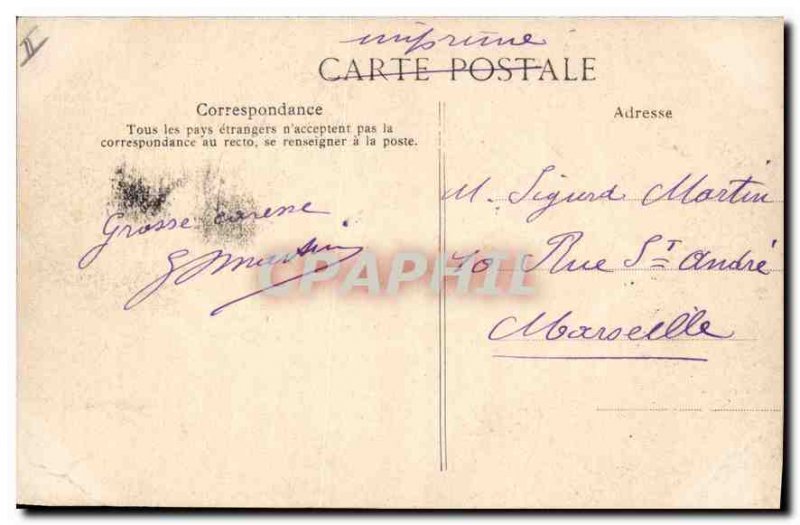 II
imprimé
CARTE POSTALE
Correspondance
Tous les pays étrangers n'acceptent pas la
correspondance au recto, se renseigner à la poste.
Grosse caresse
G Martin
Adresse
M. Sigurd Martin
40 Rue St André
Marseille
CPAPHIL